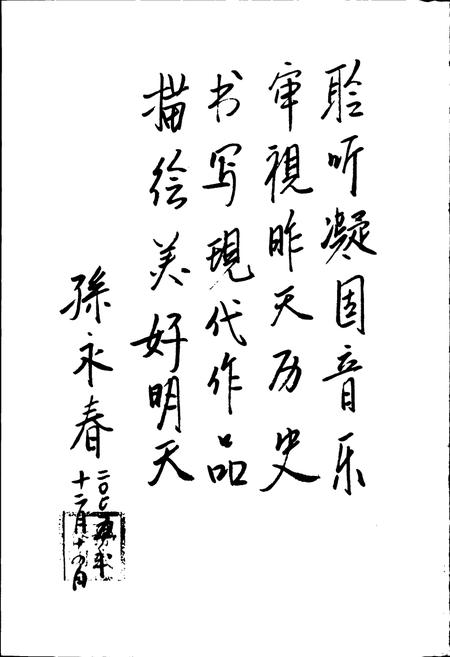 聆听凝固音乐
审視昨天历史
书写現代作品
描绘美好明天
孫永春
十二月十